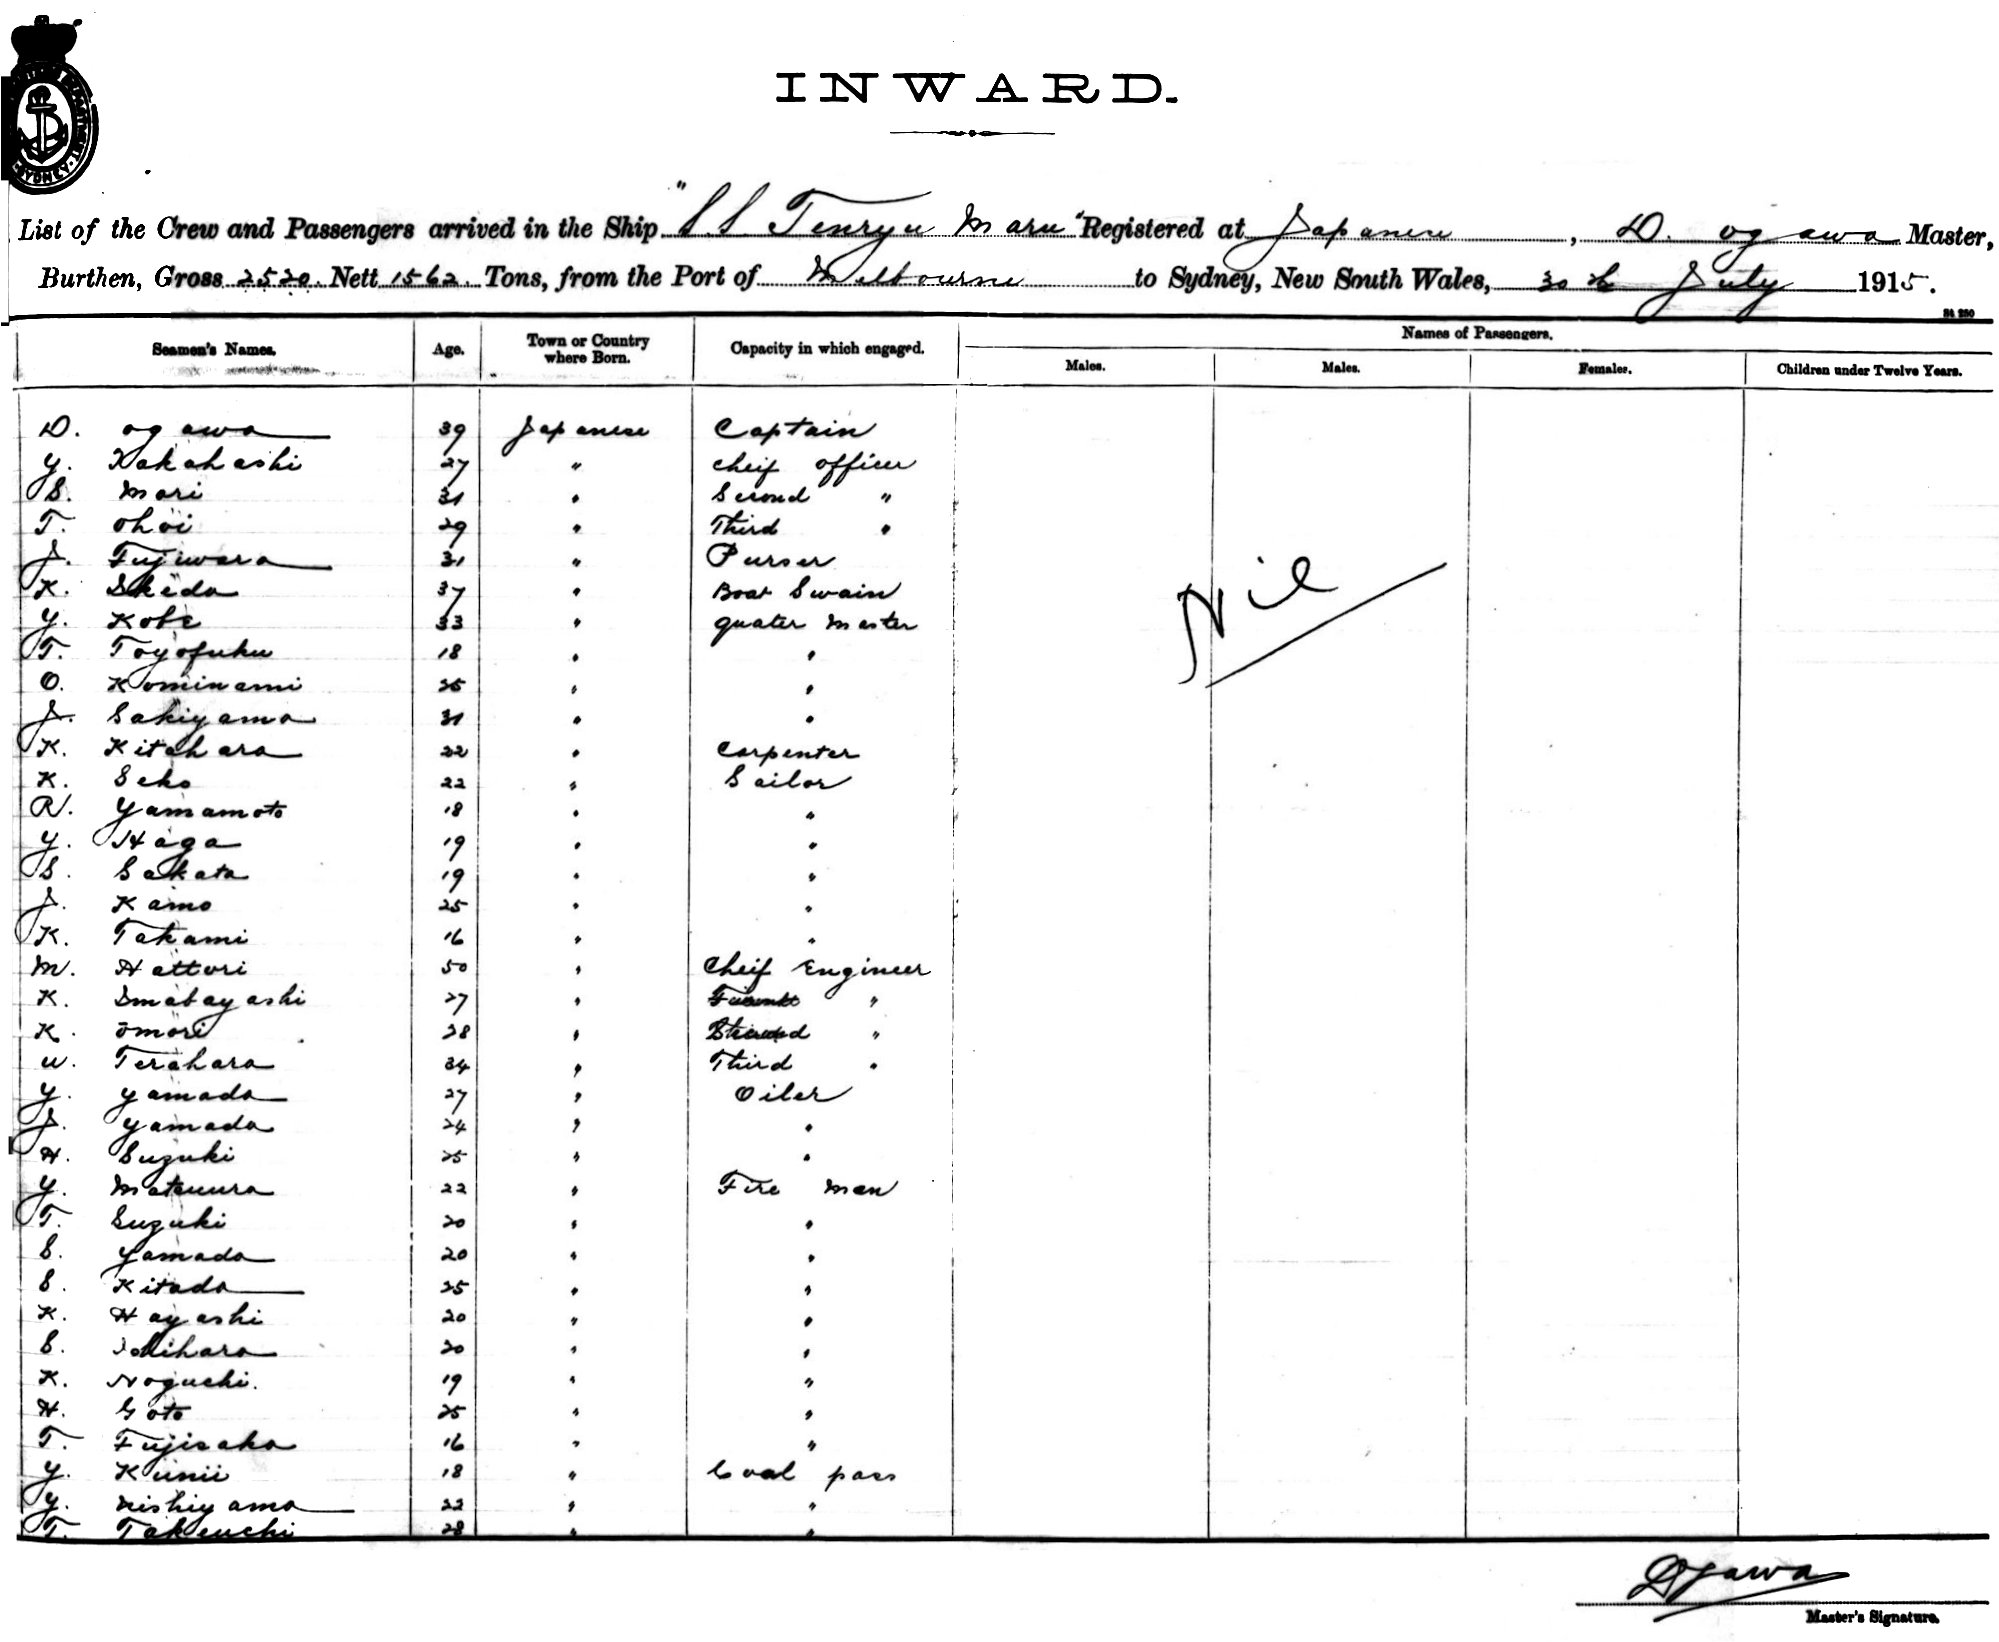 INWARD.
SYDNEY
List of the Crew and Passengers arrived in the Ship "S.S. Tenryu Maru" Registered at Japanese, D. Ogawa Master,
Burthen, Gross 2520. Nett 1562. Tons, from the Port of Melbourne to Sydney, New South Wales, 30th July 1915.
Seamen's Names. Age. Town or Country where Born. Capacity in which engaged. Names of Passengers.
Males. Males. Females. Children under Twelve Years.
D. Ogawa 39 Japanese Captain
Y. Takahashi 27 " Cheif officer
S. Mori 31 " Second "
T. Ohoi 29 " Third "
J. Fujiwara 31 " Purser
K. Ikeda 37 " Boat Swain
Y. Kobe 33 " quater master
T. Toyofuku 18 " "
O. Kominami 25 " "
J. Sakiyama 31 " "
K. Kitahara 22 " Carpenter
K. Seko 22 " Sailor
R. Yamamoto 18 " "
Y. Haga 19 " "
S. Sakata 19 " "
J. Kamo 25 " "
K. Takami 16 " "
M. Hattori 50 " Cheif Engineer
K. Imabayashi 27 " "
K. Ōmori 28 " Second "
U. Terahara 34 " Third "
Y. Yamada 27 " Oiler
J. Yamada 24 " "
H. Suzuki 25 " "
Y. Matsuura 22 " Fire man
T. Suzuki 20 " "
S. Yamada 20 " "
S. Kitada 25 " "
K. Hayashi 20 " "
S. Ishihara 20 " "
K. Noguchi. 19 " "
H. Goto 25 " "
T. Fujisaka 16 " "
Y. Kunii 18 " Coal pass
Y. Nishiyama 22 " "
T. Takeuchi 28 " "
Nil
D Ogawa
Master's Signature.